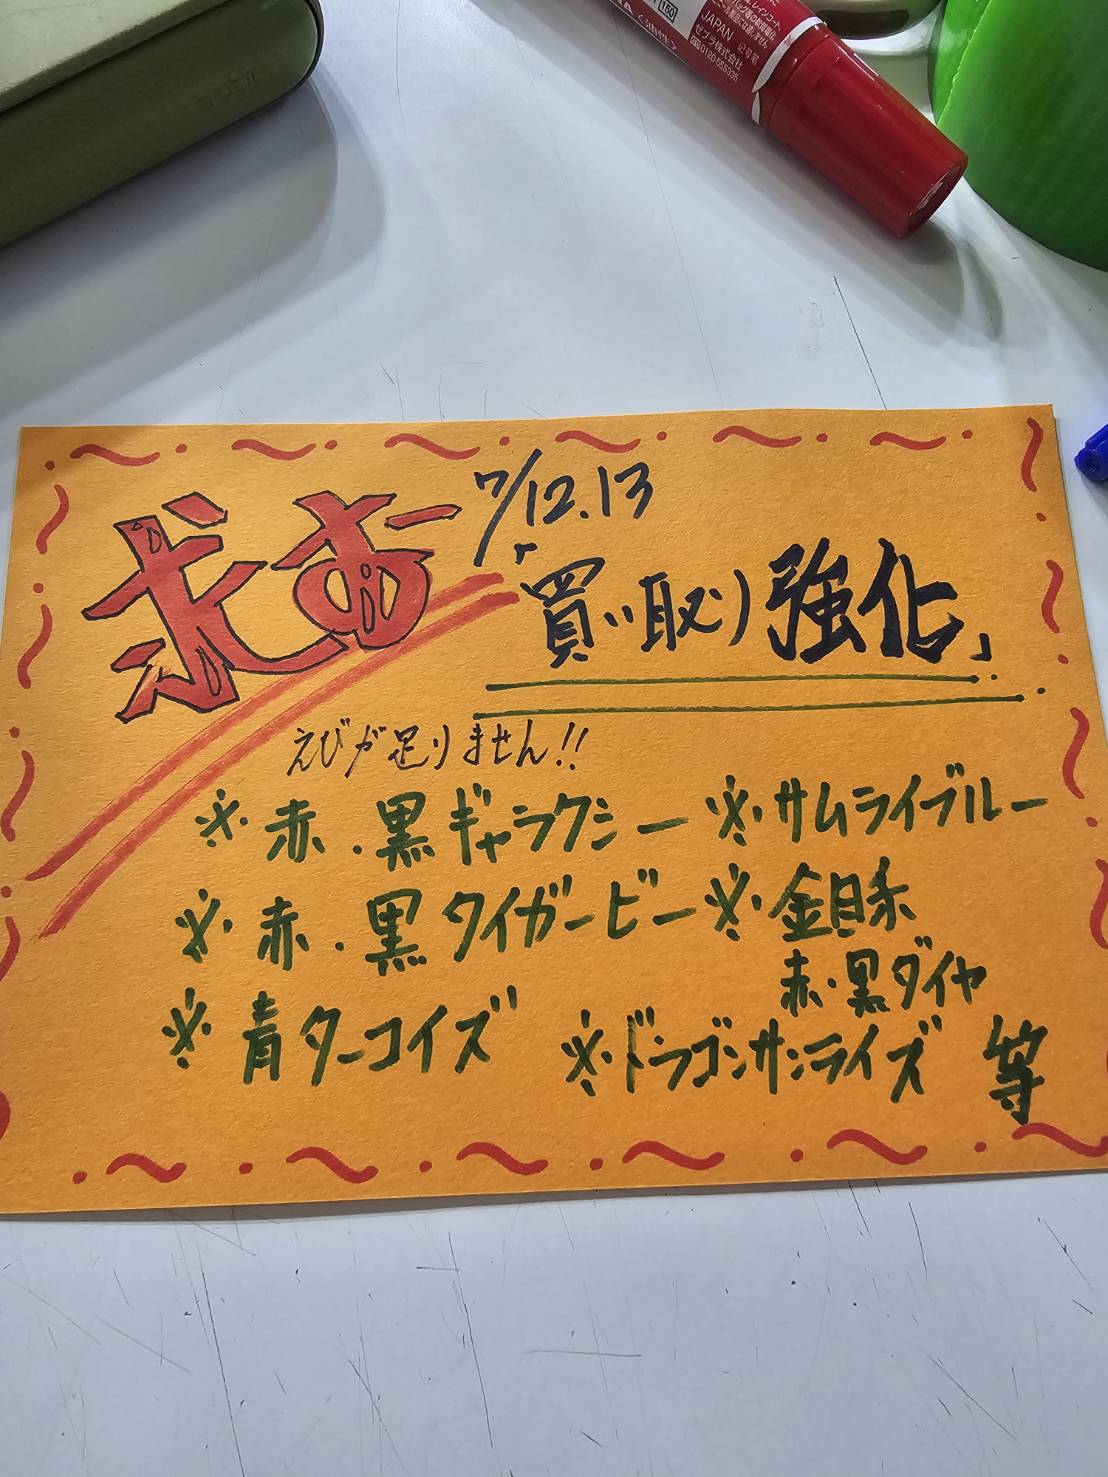 JAPAN
ゼブラ株式会社
0120-555335
求む
7/12.13
「買い取り強化」
えびが足りません!!
※赤.黒ギャラクシー ※サムライブルー
※赤.黒タイガービー ※金目赤
赤.黒ダイヤ
※青ターコイズ ※ドラゴンサンライズ 等